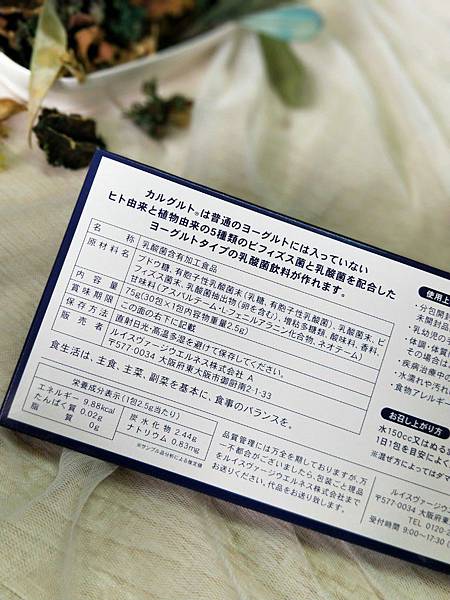 カルグルト®は普通のヨーグルトには入っていない
ヒト由来と植物由来の5種類のビフィズス菌と乳酸菌を配合した
ヨーグルトタイプの乳酸菌飲料が作れます。
名 称 乳酸菌含有加工食品
原材料名 ブドウ糖、有胞子性乳酸菌末(乳糖、有胞子性乳酸菌)、乳酸菌末、ビ
フィズス菌末、乳酸菌抽出物(卵を含む)、増粘多糖類、酸味料、香料、
甘味料(アスパルテーム・L-フェニルアラニン化合物、ネオテーム)
内 容 量 75g(30包×1包内容物重量2.5g)
賞味期限 この面の右下に記載
保存方法 直射日光・高温多湿を避けて保存してください。
販 売 者 ルイスヴァージウエルネス株式会社 A
〒577-0034 大阪府東大阪市御厨南2-1-33
食生活は、主食、主菜、副菜を基本に、食事のバランスを。
栄養成分表示(1包2.5g当たり)
エネルギー 9.88kcal
たんぱく質 0.02g
脂 質 0g
炭水化物 2.44g
ナトリウム 0.83mg
※サンプル品分析による推定値
品質管理には万全を期しておりますが、万
一不都合がございましたら、包装ごと現品
をルイスヴァージウエルネス株式会社まで
お送りください。代品をお送り致します。
使用上
・分包開封
未開封品
・乳幼児の
・体調・体質
その場合は
・疾病治療中の
・水濡れや汚れ
・食物アレルギー
お召し上がり方
水150cc又はぬるま
1日1包を目安によく
※混ぜ方によってはダマ
ルイスヴァージウエ
〒577-0034 大阪府東
TEL 0120-3
受付時間 9:00~17:30(